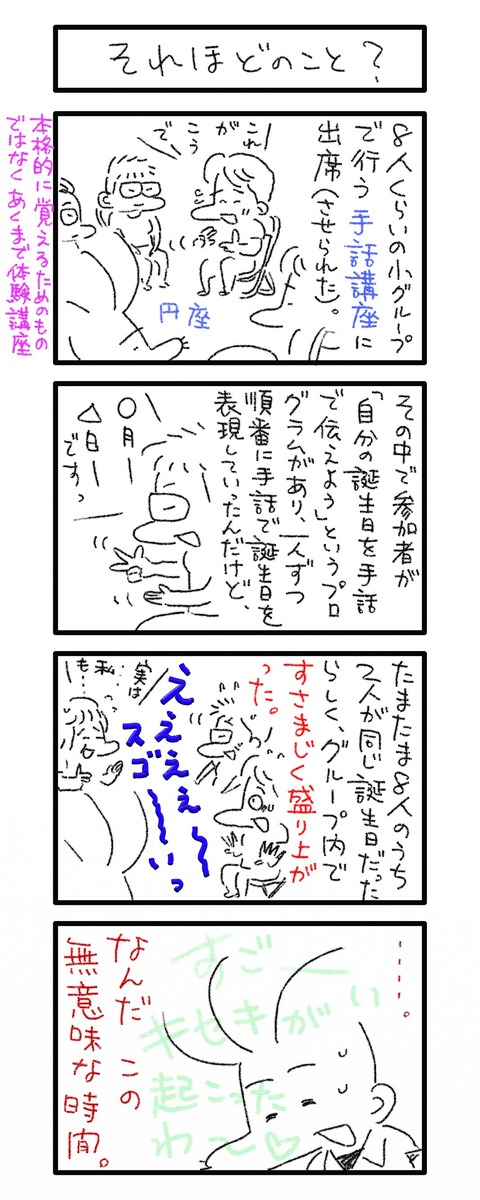 それほどのこと?
8人くらいの小グループ
で行う手話講座に
出席(させられた)。
これ
が
こう
で、
円座
本格的に覚えるためのもの
ではなくあくまで体験講座
その中で参加者が
「自分の誕生日を手話
で伝えよう」というプロ
グラムがあり、一人ずつ
順番に手話で誕生日を
表現していったんだけど、
○月ー
△日ー
ですっ
たまたま8人のうち
2人が同じ誕生日だった
らしく、グループ内で
すさまじく盛り上が
った。
ええええ〜〜
スゴ〜〜いっ
実は
私…
も…
……。
すごーい
キセキが
起こった
わ〜♡
なんだこの
無意味な時間。